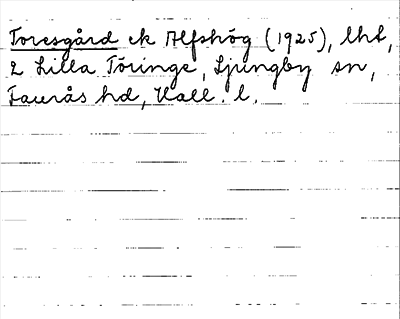 Toresgård ek Alfshög (1925), lht,
2 Lilla Töringe, Ljungby sn,
Faurås hd, Hall. l.